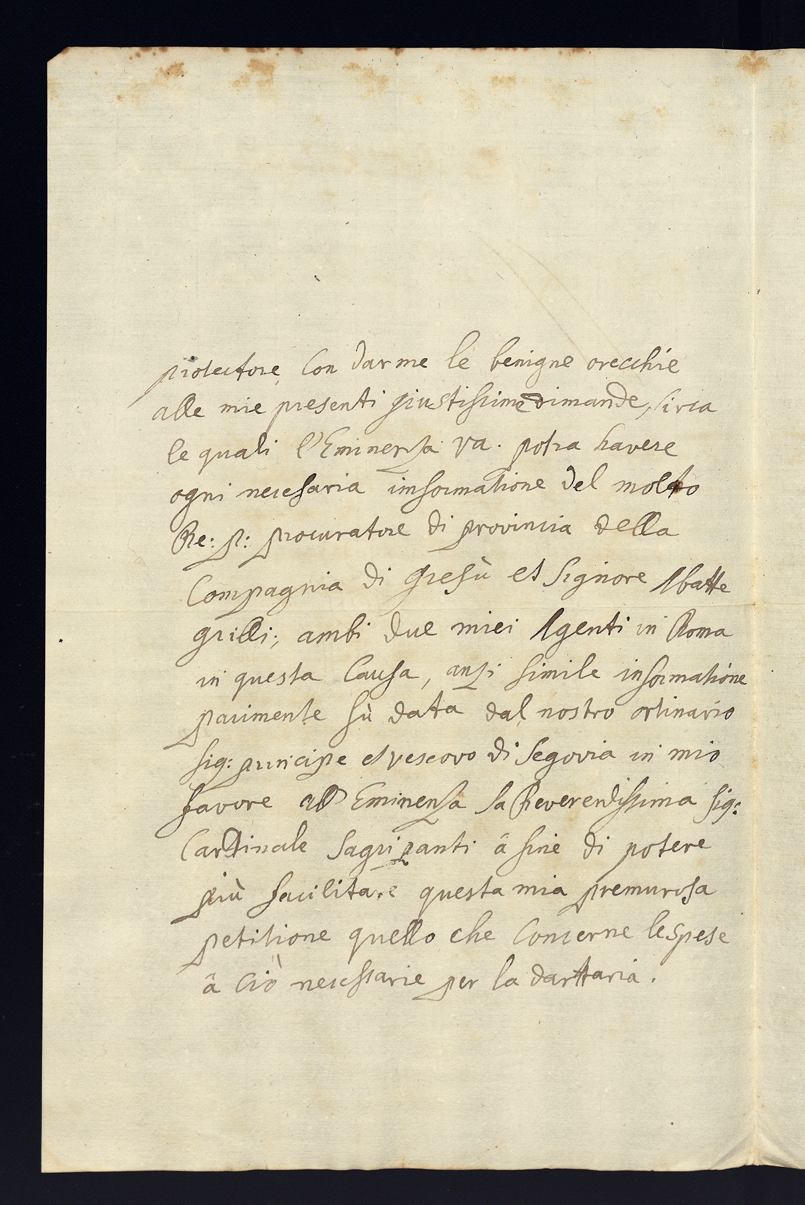 protectore, con darme le benigne orecchie
alle mie presenti giustissime dimande, circa
le quali l'Eminenza va. potra havere
ogni necesaria imformatione del molto
Re: p: procuratore di provincia della
Compagnia di Giesù et signore Abatte
grilli; ambi due miei Agenti in Roma
in questa Causa, anzi simile informatione
parimente fù data dal nostro ordinario
sig: principe et vescovo di Segovia in mio
favore all Eminenza sa Reverendissima sig:
Cardinale Sagripanti â fine di potere
più facilitare questa mia premurosa
petitione quello che concerne le spese
â ciò necessarie per la dartaria.